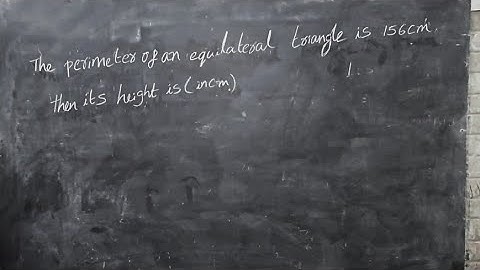 The perimeter of an equilateral triangle is 156cm.
then its height is (in cm)